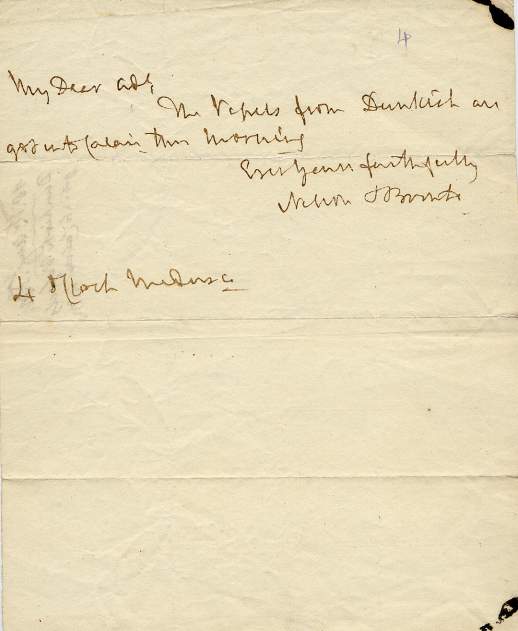 4
My Dear Adl
The Vessels from Dunkirk are
got into Calais this Morning
Ever Yours faithfully
Nelson & Bronte
4 oClock Medusa